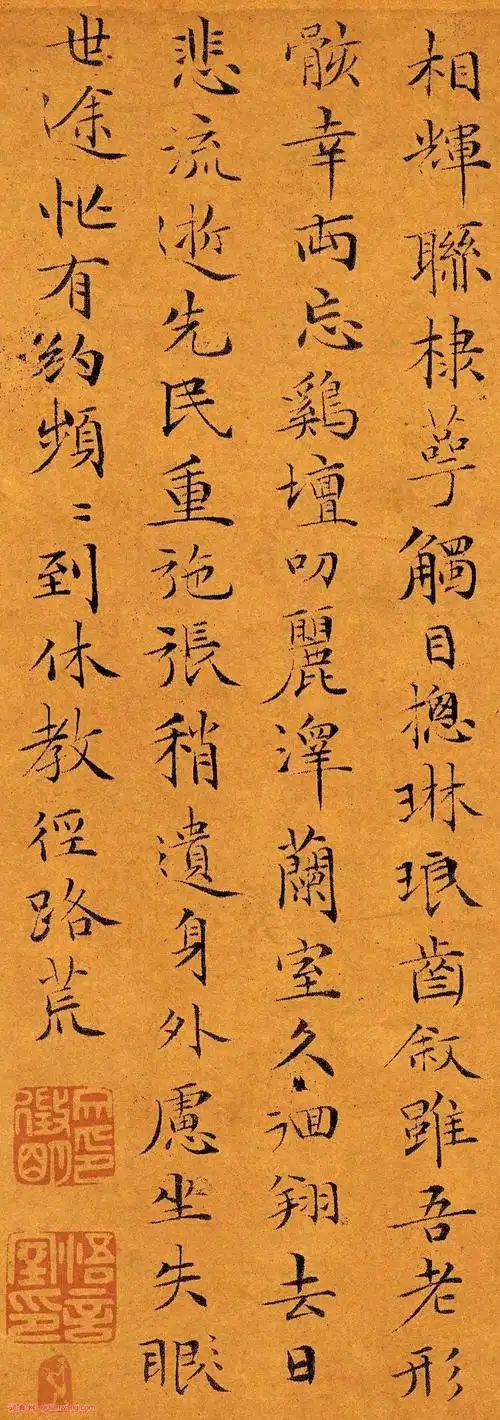 相輝聯棣萼觸目摠琳琅齒叙雖吾老形
骸幸両忘鷄壇叨麗澤蘭室久徊翔去日
悲流逝先民重施張稍遺身外慮坐失眼
世途忙有約頻〻到休教徑路荒
文徵明印
悟言室印